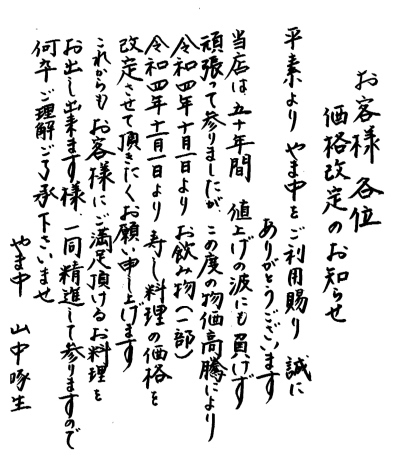 お客様各位
価格改定のお知らせ
平素より やま中をご利用賜り 誠に
ありがとうございます
当店は五十年間 値上げの波にも負けず
頑張って参りましたが、この度の物価高騰により
令和四年十月一日より お飲み物(一部)
令和四年十一月一日より 寿し料理の価格を
改定させて頂きたくお願い申し上げます
これからもお客様にご満足頂けるお料理を
お出し出来ます様、一同精進して参りますので
何卒ご理解ご了承下さいませ
やま中 山中啄生